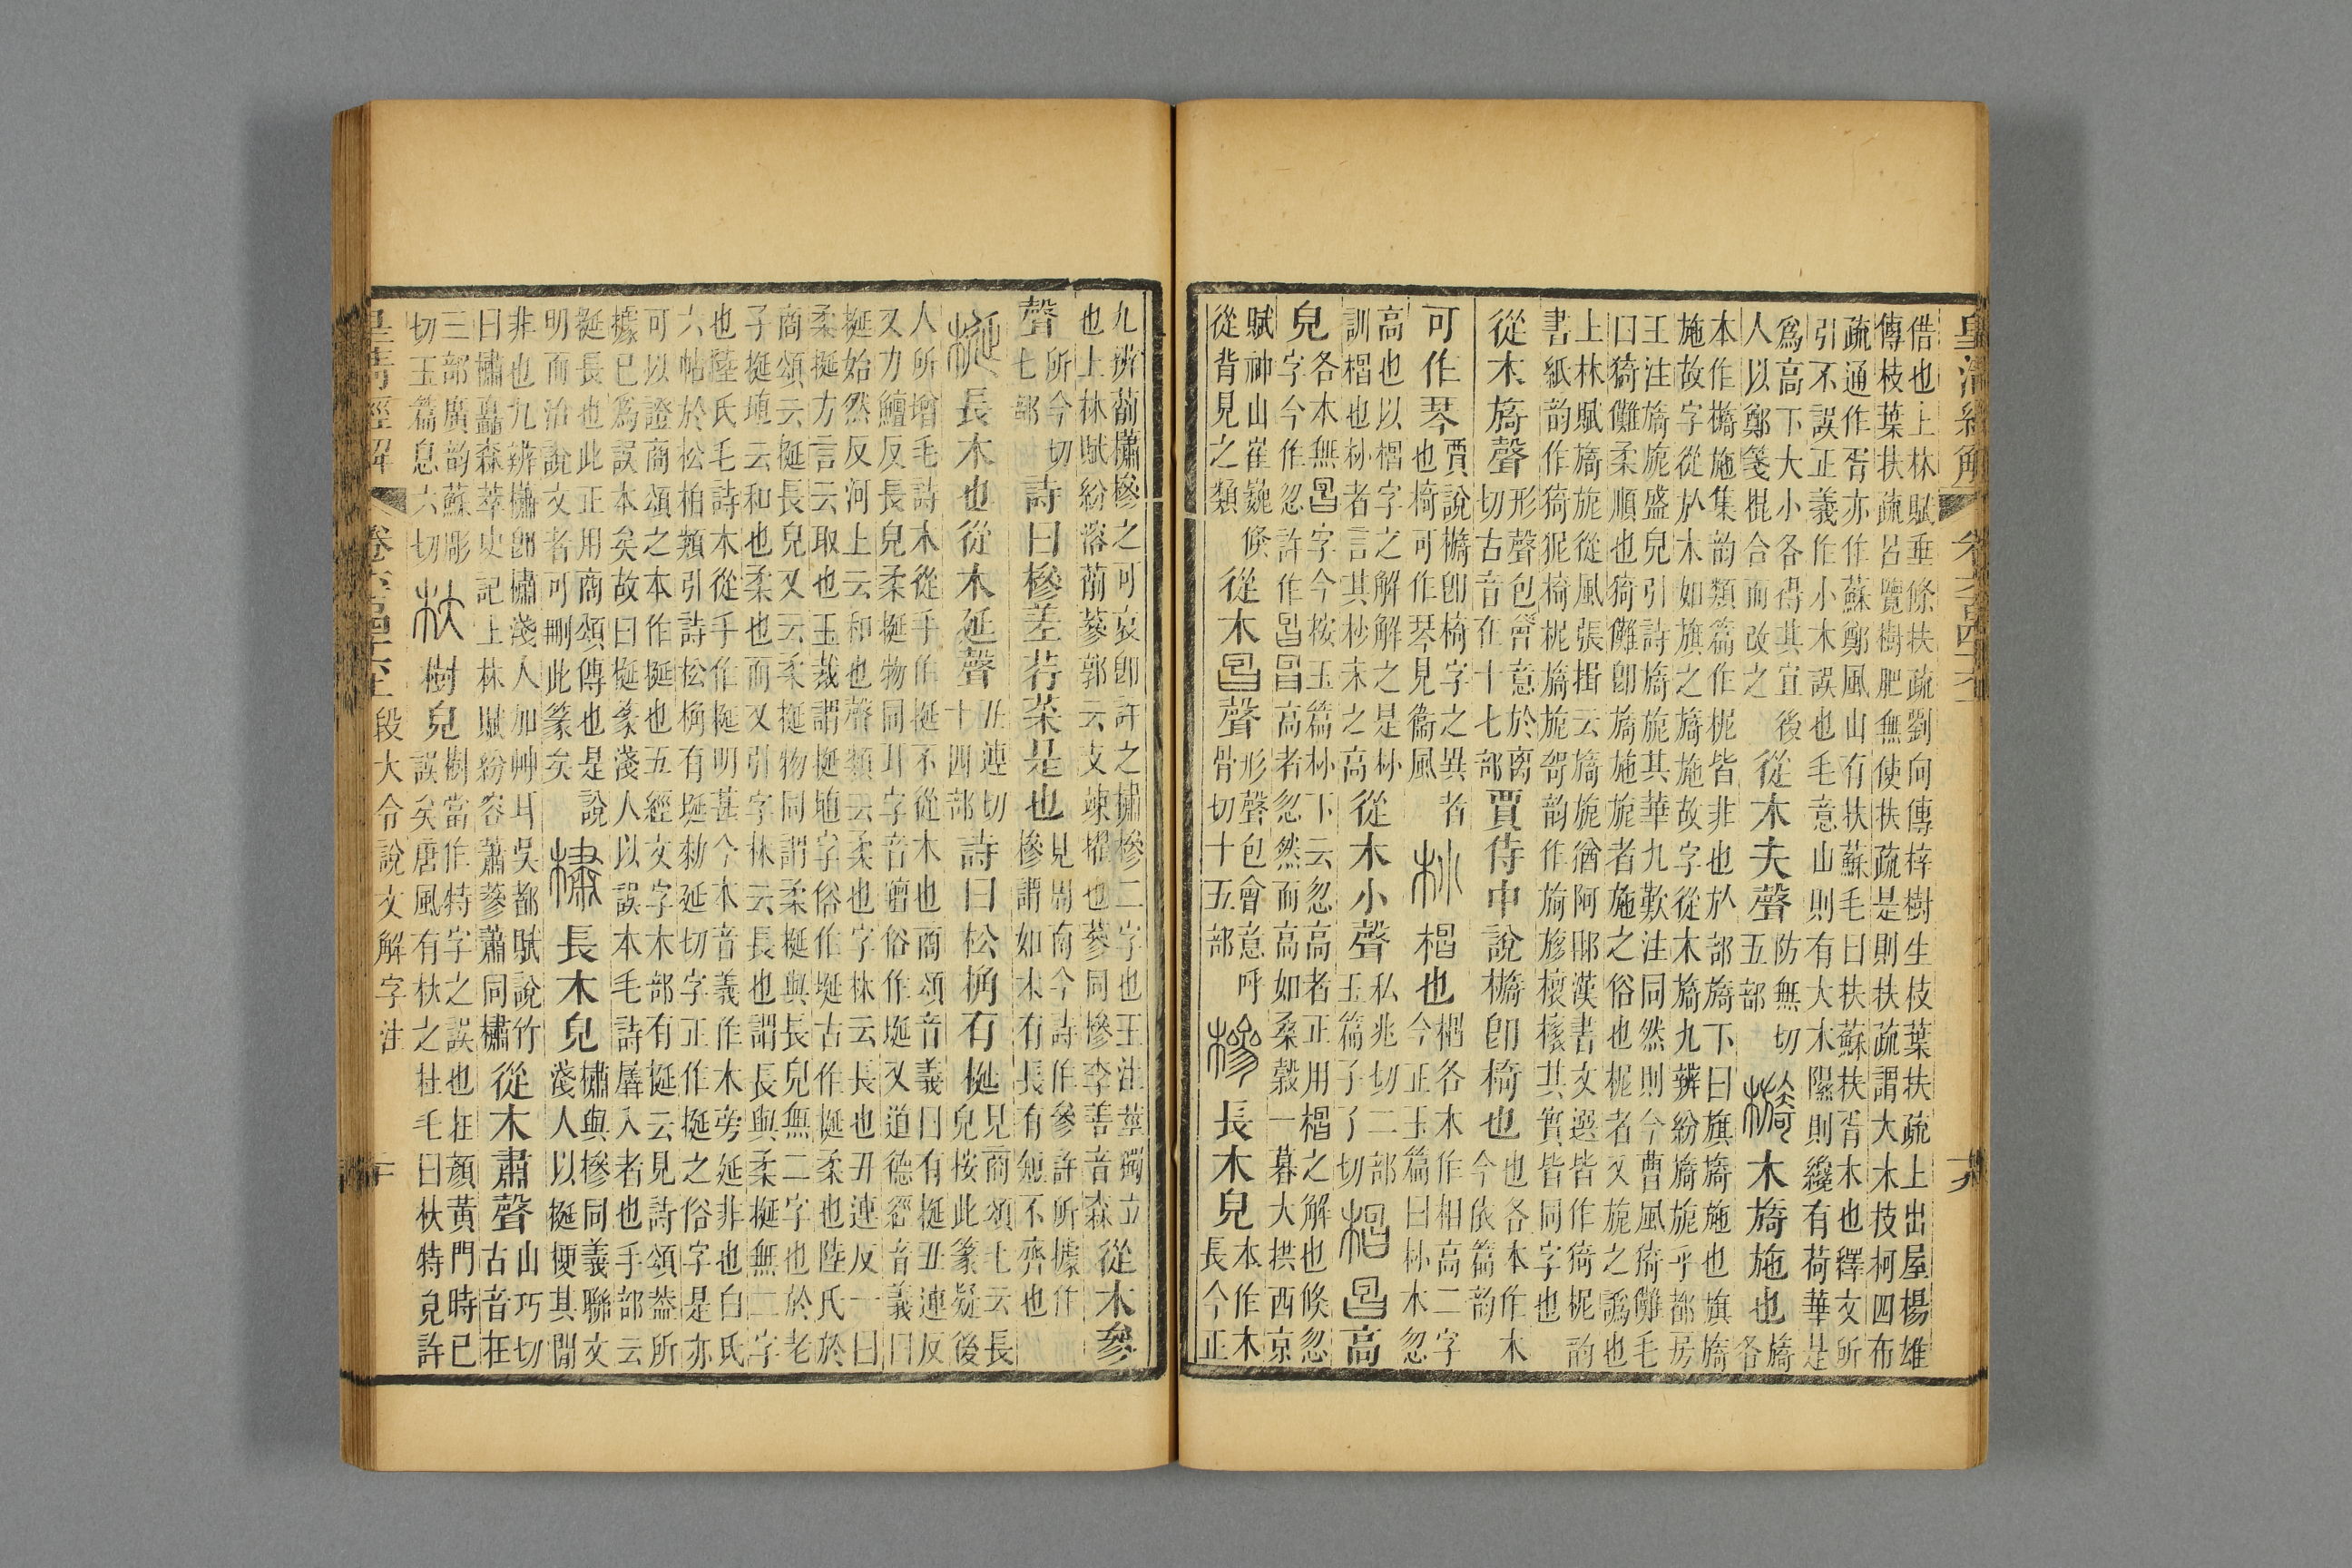 皇清經解
卷六百四十六
十八
借也上林賦垂條扶疏劉向傳梓樹生枝葉扶疏上出屋楊雄
傳枝葉扶疏呂覽樹肥無使扶疏是則扶疏謂大木枝柯四布
疏通作胥亦作蘇鄭風山有扶蘇毛曰扶蘇扶胥木也釋文所
引不誤正義作小木誤也毛意山則有大木隰則纔有荷華是
爲高下大小各得其宜後人以鄭箋棍合而改之從木夫聲防無切五部檹木旖施也旖各
本作檹施集韵類篇作柅皆非也於㫃部旖下曰旗旖施也旗旖
施故字從㫃木如旗之旖施故字從木旖九辨紛旖旎乎都房
王注旖旎盛皃引詩旖旎其華九歎注同然則今曹風猗儺毛
曰猗儺柔順也猗儺卽旖施旎者施之俗也柅者又旎之譌也
上林賦旖旎從風張揖云旖旎猶阿那漢書文選皆作猗柅韵
書紙韵作猗狔椅柅旖旎哿韵作其實皆同字也
從木旖聲形聲包會意於离切古音在十七部賈侍中說檹卽椅也也各本作木今依篇韵
可作琴賈說檹卽椅字之異者也椅可作琴見衞風⿰木小㮧也㮧各木作相高二字今正玉篇曰⿰木小木忽
高也以㮧字之解解之是⿰木小訓㮧也⿰木小者言其杪末之高從木小聲私兆切二部玉篇子了切㮧㮧高
皃各本無㮧字今按玉篇⿰木小下云忽高者正用㮧之解也倏忽
字今作忽許作曶曶高者忽然而高如桑穀一暮大拱西京
賦神山崔巍倏從背見之類從木曶聲形聲包會意呼骨切十五部槮長木皃本作木長今正
九辨萷櫹槮之可哀卽許之橚槮二字也王注莖獨立
也上林賦紛溶萷蔘郭云支竦櫂也蔘同槮李善音森從木參
聲所今切七部詩曰槮差荇菜是也見周南今詩作參許所據作槮謂如木有長有短不齊也
梴長木也從木延聲丑連切十四部詩曰松桷有梴見商頌七云長皃按此篆疑後
人所增毛詩木從手作挺不從木也商頌音義曰有梴丑連反
又力鱣反長皃柔梴物同耳字音羶俗作埏又道德經音義曰
挻始然反河上云和也聲類云柔也字林云長也丑連反一曰
柔挻方言云取也王裁謂挻埴字俗作埏古作挻柔也陸氏於
商頌云梴長皃又云柔挻物同謂柔挻與長皃無二字也於老
子挻埴云和也柔也而又引字林云長也謂長與柔挻無二字
也陸氏毛詩木從手作挻明甚今本音義作木旁延非也白氏
六帖於松柏類引詩松桷有埏勑延切字正作挻之俗字是亦
可以證商頌之本作挻也五經文字木部有梴云見詩頌葢所
據已爲誤本矣故曰梴篆淺人以誤本毛詩羼入者也手部云
挻長也此正用商頌傳也是說
明而治說文者可刪此篆矣橚長木皃橚與槮同義聯文淺人以梴梗其閒
非也九辨櫹卽橚淺人加艸耳吳都賦說竹
曰橚矗森萃史記上林賦紛容蕭蔘蕭同橚從木肅聲山巧切古音在
三部廣韵蘇彫切玉篇息六切杕樹皃樹當作特字之誤也在顏黃門時已誤矣唐風有杕之杜毛曰杕特皃許
皇清經解
卷六百四十六上
段大令說文解字注